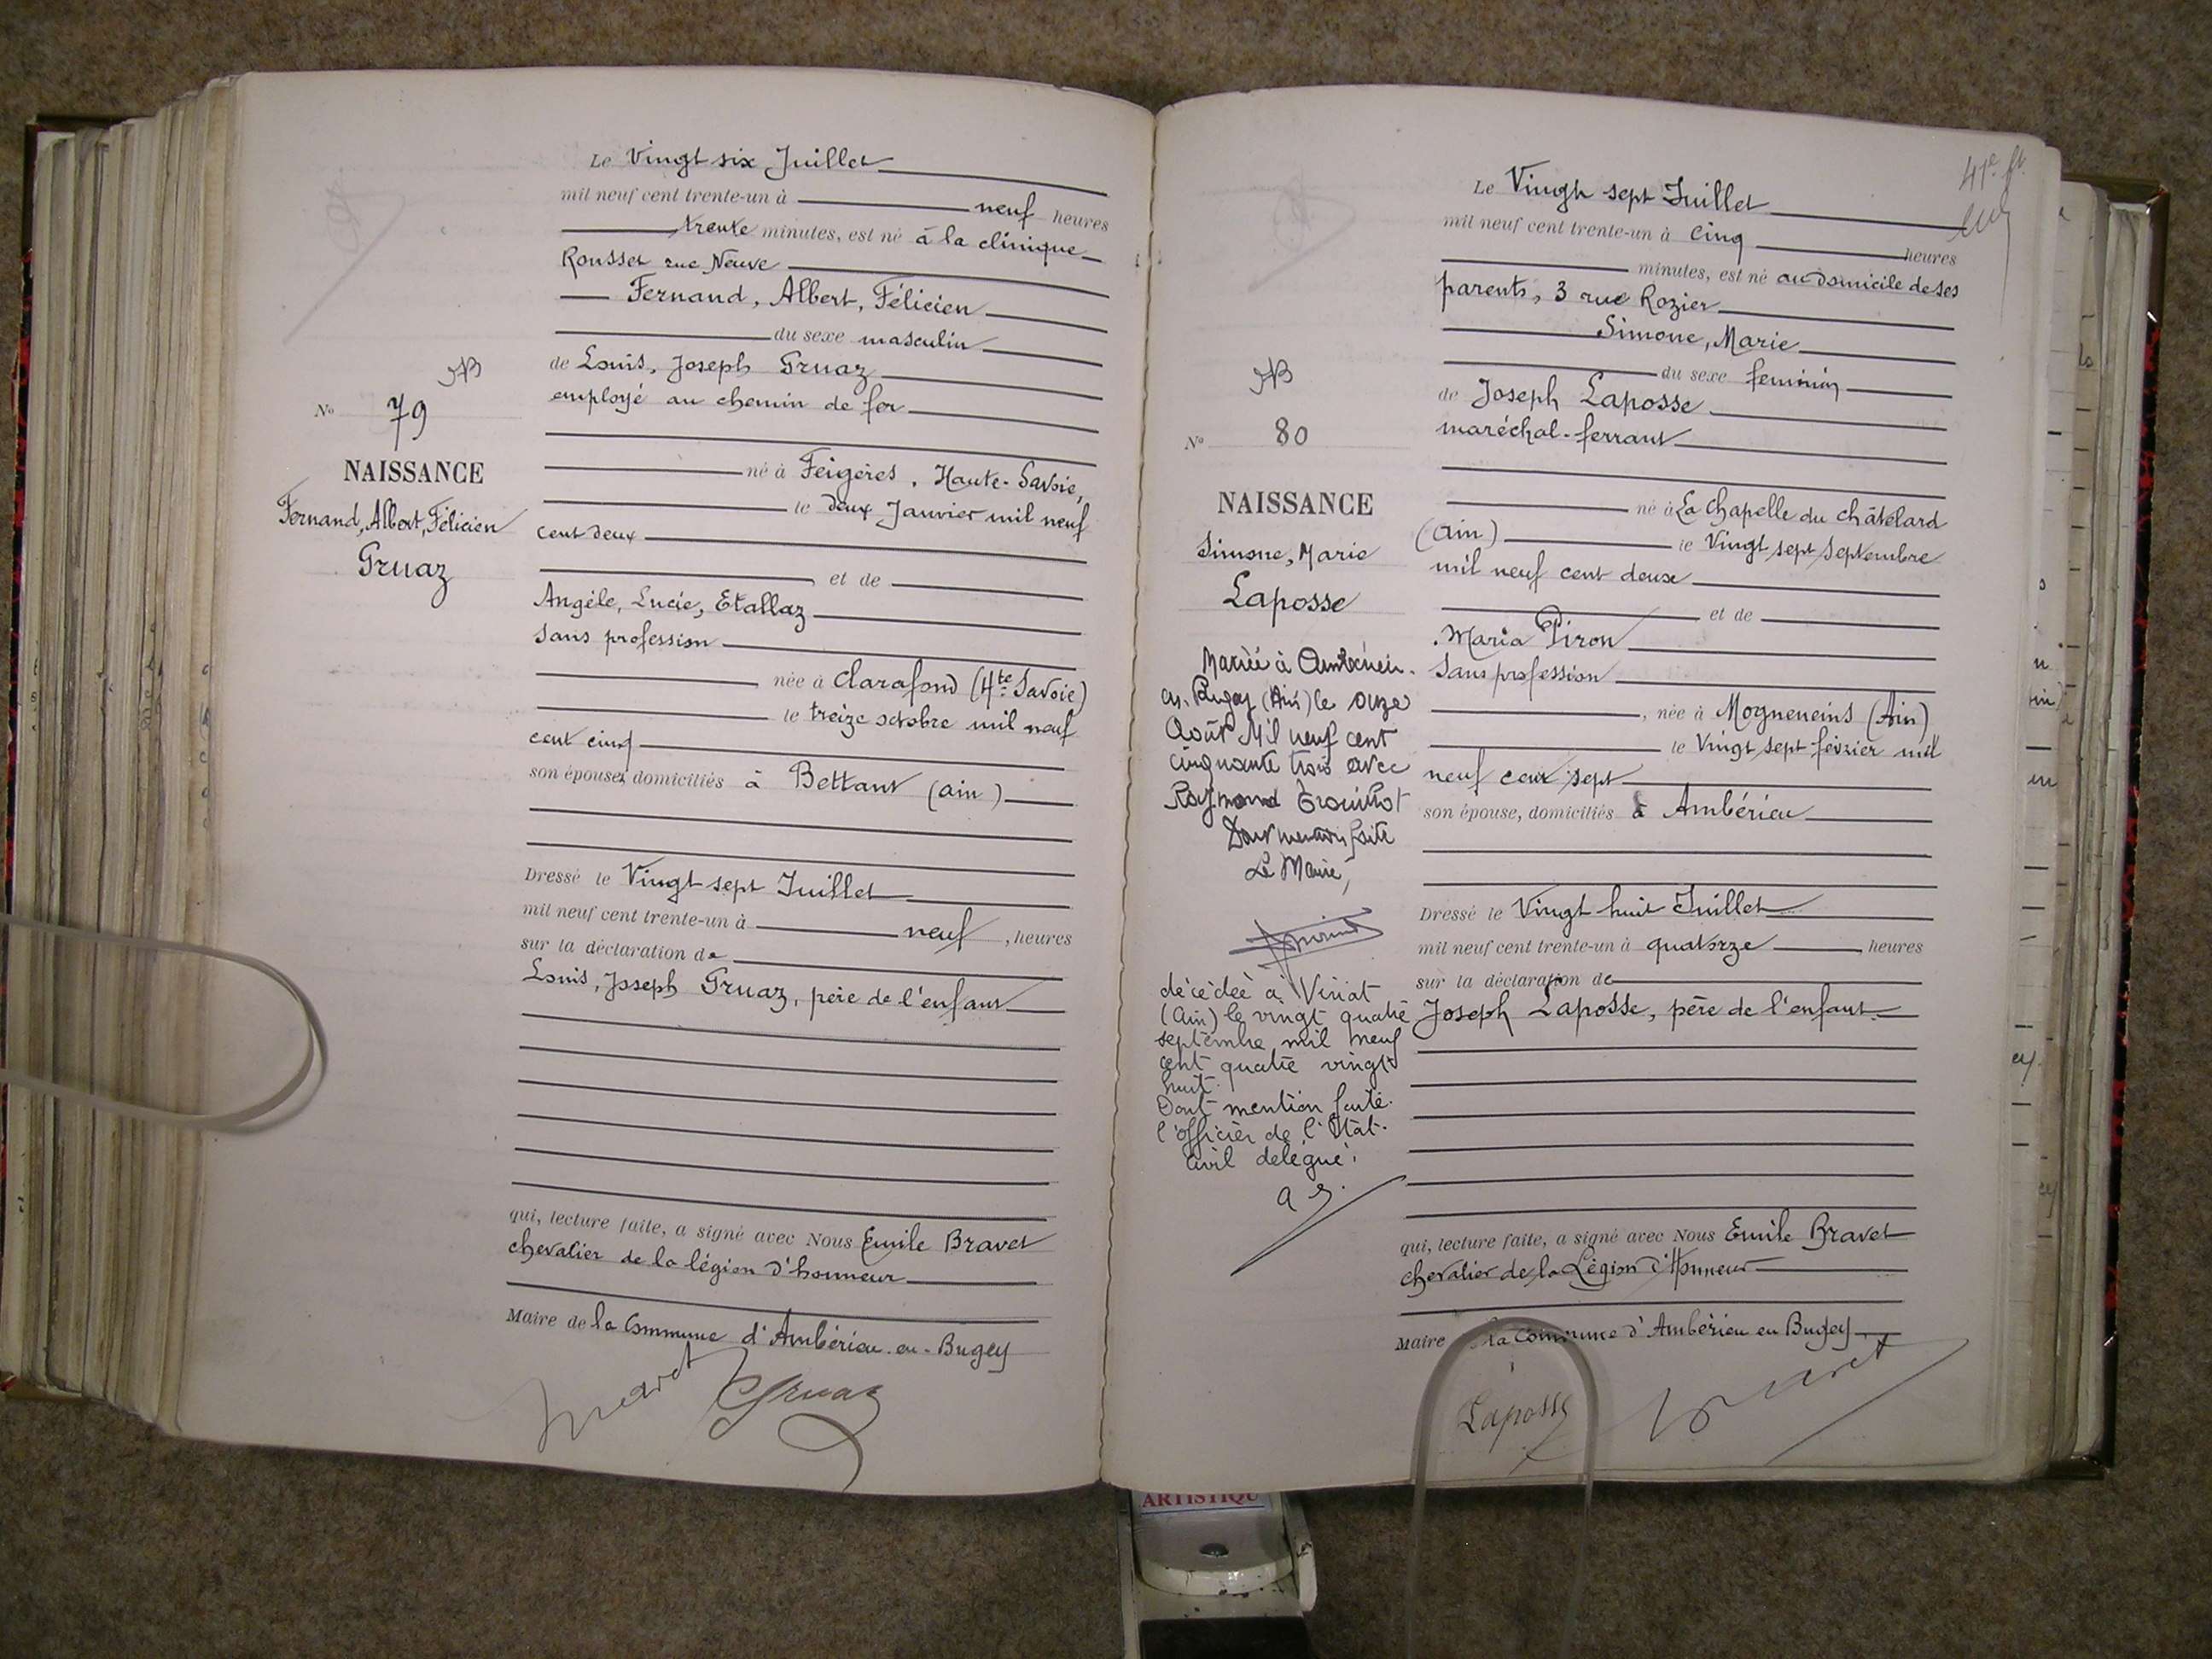 Le Vingt six Juillet
mil neuf cent trente-un à neuf heures
trente minutes, est né à la clinique
Rousset rue Neuve
Fernand, Albert, Félicien
du sexe masculin
de Louis, Joseph Gruaz
employé au chemin de fer
né à Feigères, Haute-Savoie,
le deux Janvier mil neuf
cent deux
et de
Angèle, Lucie, Etallaz
sans profession
née à Clarafond (Hte Savoie)
le treize octobre mil neuf
cent cinq
son épouse, domiciliés à Bettant (ain)
Dressé le Vingt sept Juillet
mil neuf cent trente-un à neuf, heures
sur la déclaration de
Louis, Joseph Gruaz, père de l'enfant
qui, lecture faite, a signé avec Nous Emile Bravet
chevalier de la légion d'honneur
Maire de la Commune d'Ambérieu-en-Bugey
Bravet Gruaz
AB
No 79
NAISSANCE
Fernand, Albert, Félicien
Gruaz
41e ft
Le Vingt sept Juillet
mil neuf cent trente-un à cinq heures
minutes, est né au domicile de ses
parents, 3 rue Rozier
Simone, Marie
du sexe feminin
de Joseph Laposse
maréchal-ferrant
né à La Chapelle du châtelard
(ain) le Vingt sept Septembre
mil neuf cent deux
et de
Maria Piron
Sans profession
, née à Mogneneins (Ain)
le Vingt sept février mil
neuf cent sept
son épouse, domiciliés à Ambérieu
Dressé le Vingt huit Juillet
mil neuf cent trente-un à quatorze, heures
sur la déclaration de
Joseph Laposse, père de l'enfant.
qui, lecture faite, a signé avec Nous Emile Bravet
chevalier de la Légion d'Honneur
Maire la Commune d'Ambérieu en Bugey
Laposse Bravet
AB
No 80
NAISSANCE
Simone, Marie
Laposse
Mariée à Ambérieu-
en-Bugey (Ain) le onze
Août Mil neuf cent
cinquante trois avec
Raymond Trouillot
Dont mention faite
Le Maire,
décédée à Viriat
(Ain) le vingt quatre
septembre mil neuf
cent quatre vingt
huit.
Dont mention faite.
l'officier de l'Etat-
Civil délégué.
ARTISTIQU